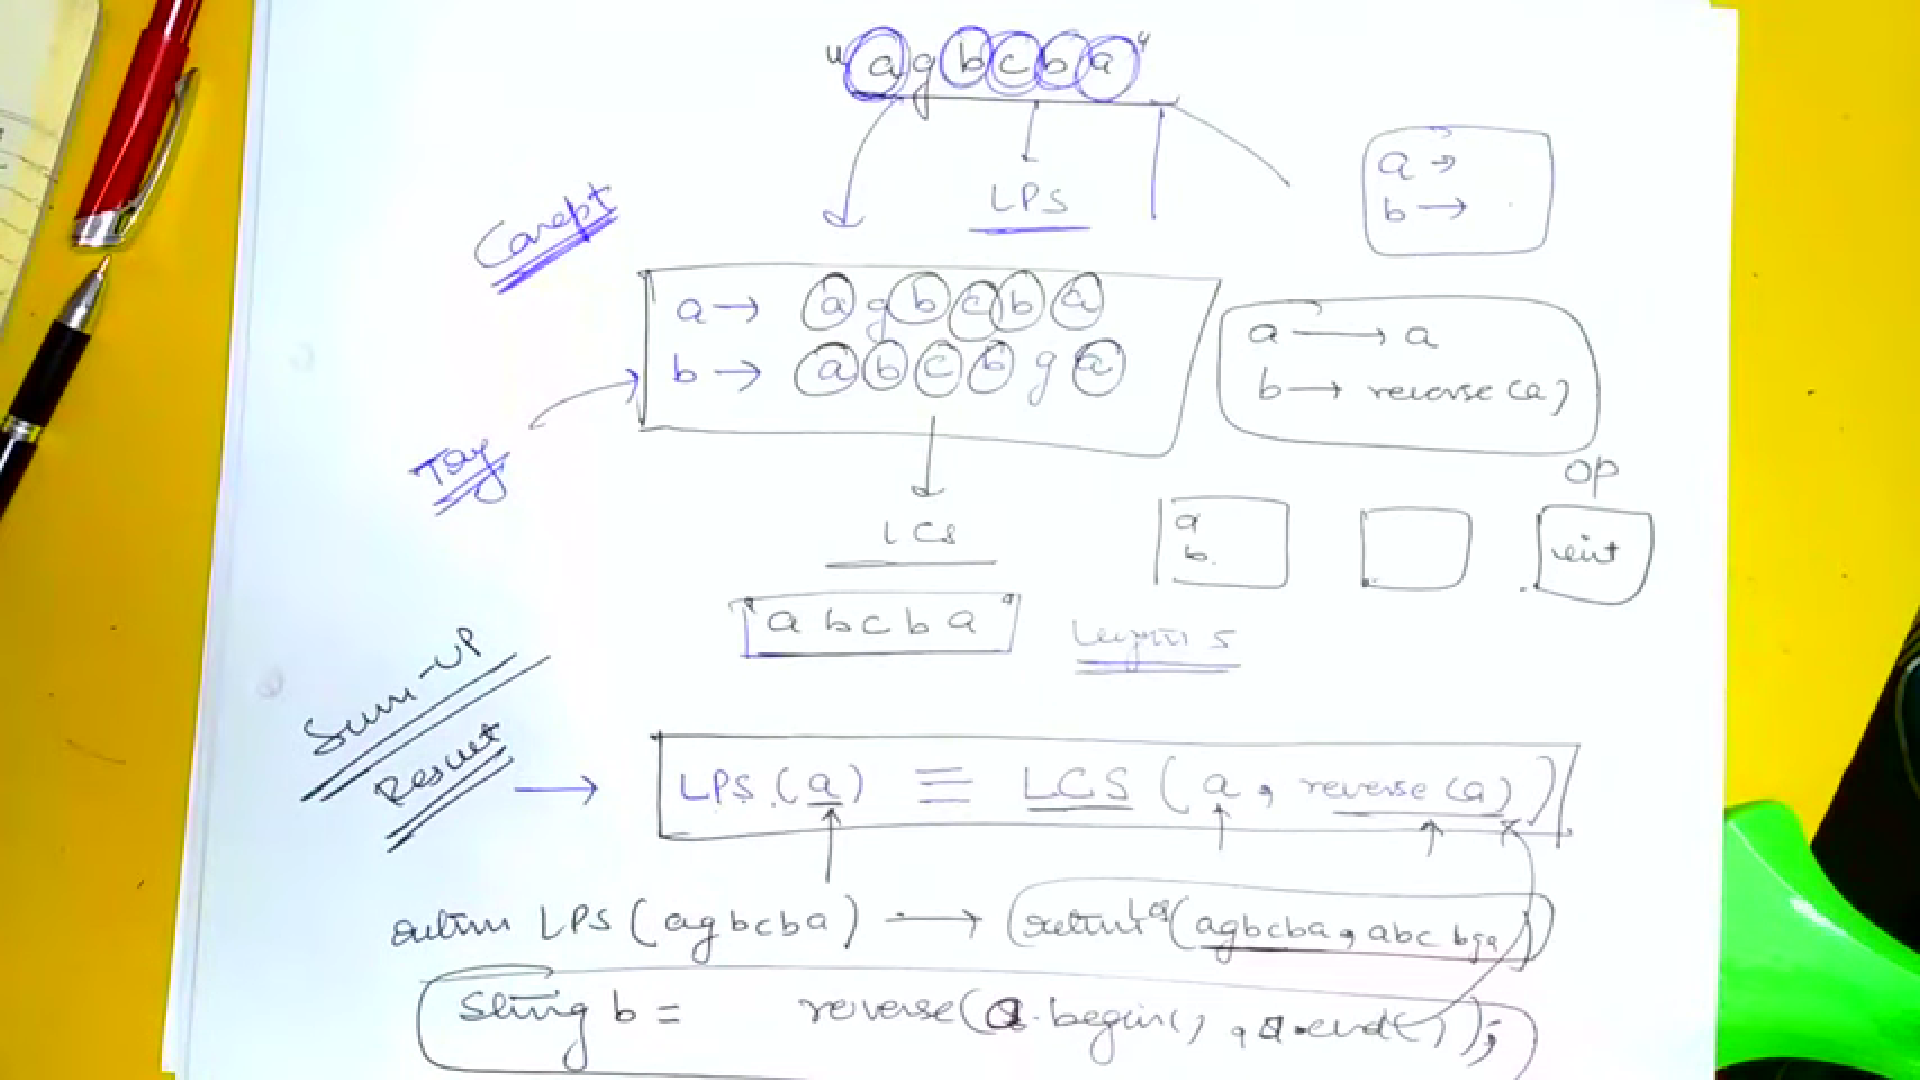 "agbcba"
LPS
a →
b →
a → agbcba
b → abcbga
a → a
b → reverse(a)
LCS
OP
a
b
"abcba"
Length 5
Sum-UP
Result → LPS(a) ≡ LCS (a, reverse(a))
return LPS(agbcba) → return (agbcba, abcbga)
String b = reverse(a.begin(), a.end());